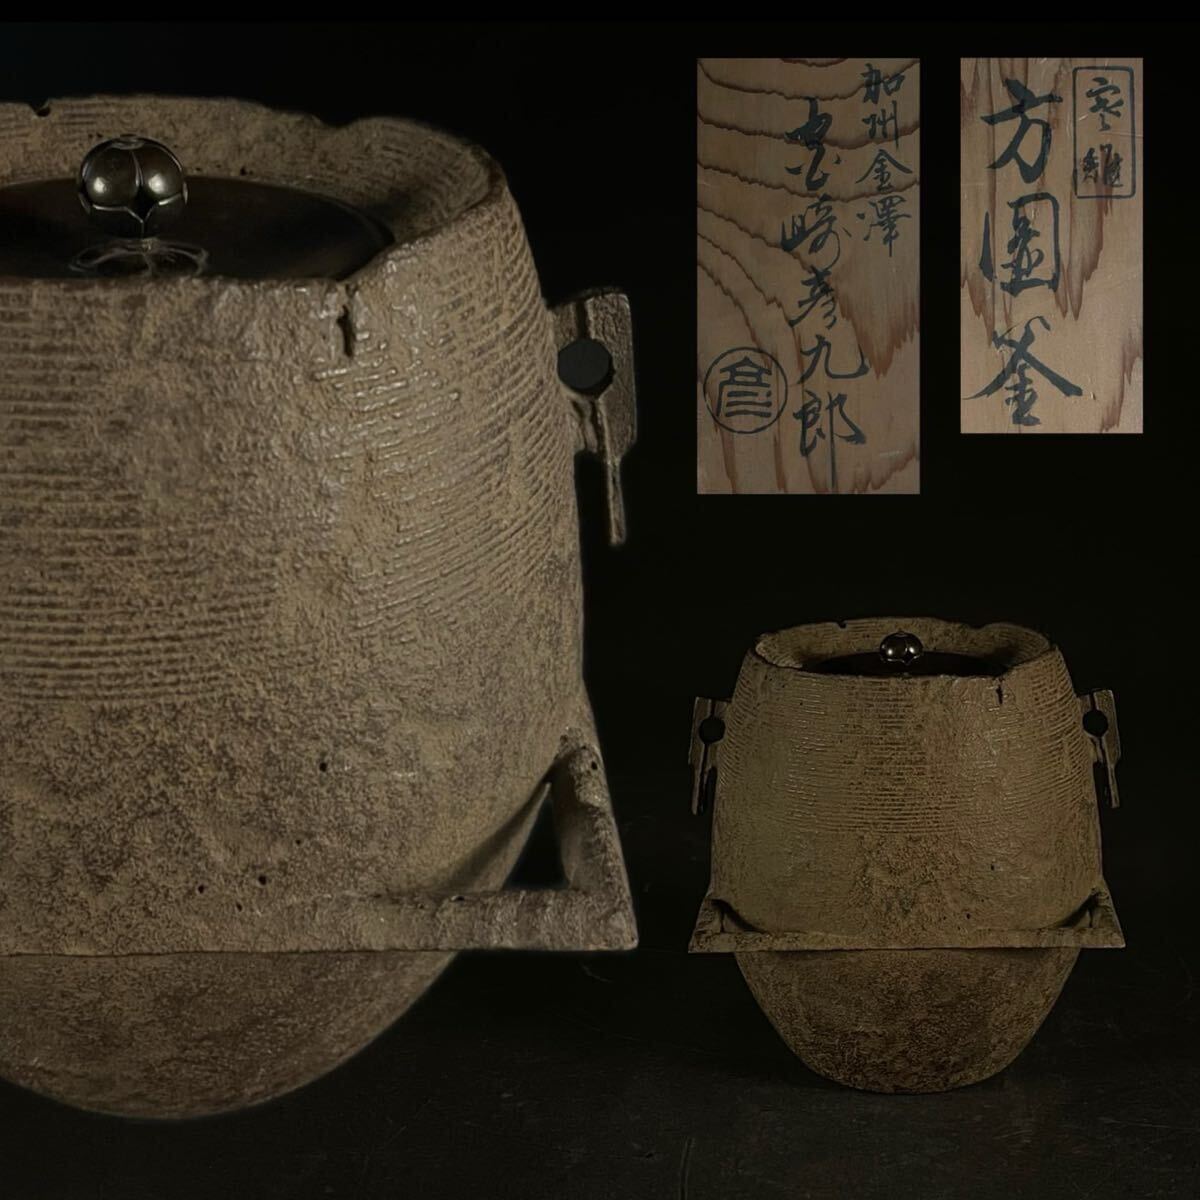 寒雉
方圓釜
加州金澤
宮崎彦九郎
彦